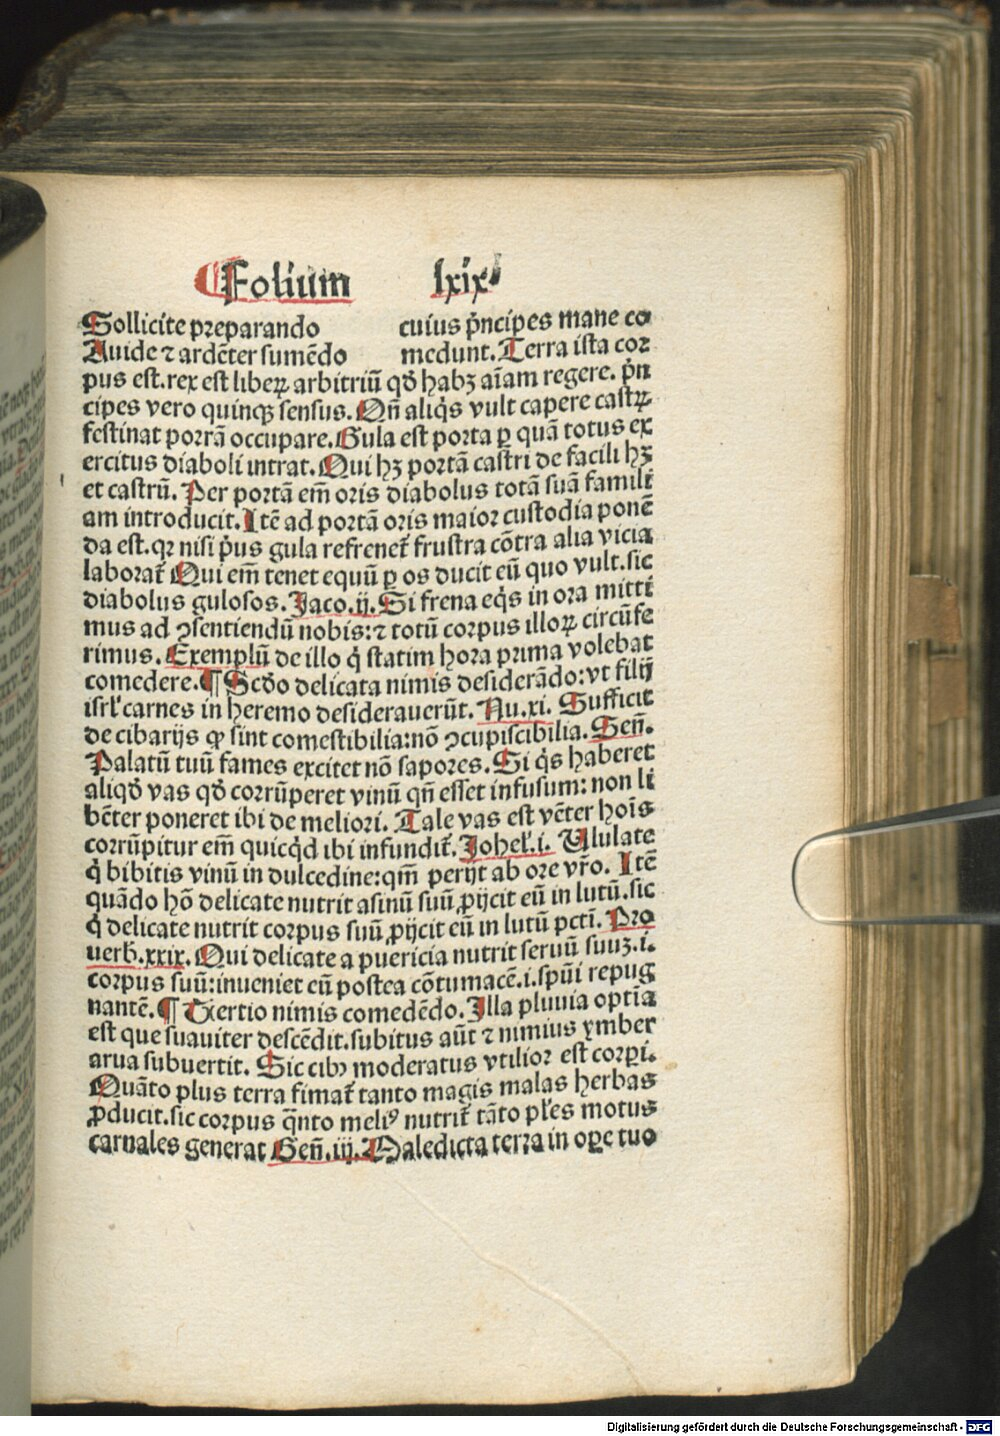 Folium lxix
Sollicite preparando cuius p̃ncipes mane co
Auide ⁊ ardẽter sumẽdo medunt. Terra ista cor
pus est. rex est liberꝝ arbitriũ qđ habꝫ aĩam regere. p̃n
cipes vero quinqꝫ sensus. Qñ aliq̃s vult capere castrꝝ
festinat portã occupare. Gula est porta ꝑ quã totus ex
ercitus diaboli intrat. Qui hꝫ portã castri de facili hꝫ
et castrũ. Per portã em̃ oris diabolus totã suã famili
am introducit. Itẽ ad portã oris maior custodia ponẽ
da est. qꝛ nisi p̃us gula refrenet̃ frustra cõtra alia vicia
laborat̃ Qui em̃ tenet equũ ꝑ os ducit eũ quo vult. sic
diabolus gulosos. Jaco. ij. Si frena eq̃s in ora mitti
mus ad ꝯsentiendũ nobis: ⁊ totũ corpus illoꝝ circũfe
rimus. Exemplũ de illo q̃ statim hora prima volebat
comedere. ¶ Scđo delicata nimis desiderãdo: vt filij
isrl̃ carnes in heremo desiderauerũt. Nu. xi. Sufficit
de cibarijs ꝙ sint comestibilia: nõ ꝯcupiscibilia. Señ.
Palatũ tuũ fames excitet nõ sapores. Si q̃s haberet
aliqđ vas qđ corrũperet vinũ qñ esset infusum: non li
bẽter poneret ibi de meliori. Tale vas est vẽter hoĩs
corrũpitur em̃ quicq̃d ibi infundit̃. Johel̃. i. Ululate
q̃ bibitis vinũ in dulcedine: qm̃ perijt ab ore vr̃o. Itẽ
quãdo hõ delicate nutrit asinũ suũ ꝓijcit eũ in lutũ. sic
q̃ delicate nutrit corpus suũ ꝓijcit eũ in lutũ pcti̅. Pro
uerb. xxix. Qui delicate a puericia nutrit seruũ suuꝫ. i.
corpus suũ: inueniet eũ postea cõtumacẽ. i. spũi repug
nantẽ. ¶ Tertio nimis comedẽdo. Illa pluuia optĩa
est que suauiter descẽdit. subitus aũt ⁊ nimius ymber
arua subuertit. Sic cibꝰ moderatus vtilior est corpi.
Quãto plus terra fimat̃ tanto magis malas herbas
ꝓducit. sic corpus q̃nto meliꝰ nutrit̃ tãto pl̃es motus
carnales generat Geñ. iij. Maledicta terra in oꝑe tuo
Digitalisierung gefördert durch die Deutsche Forschungsgemeinschaft - DFG